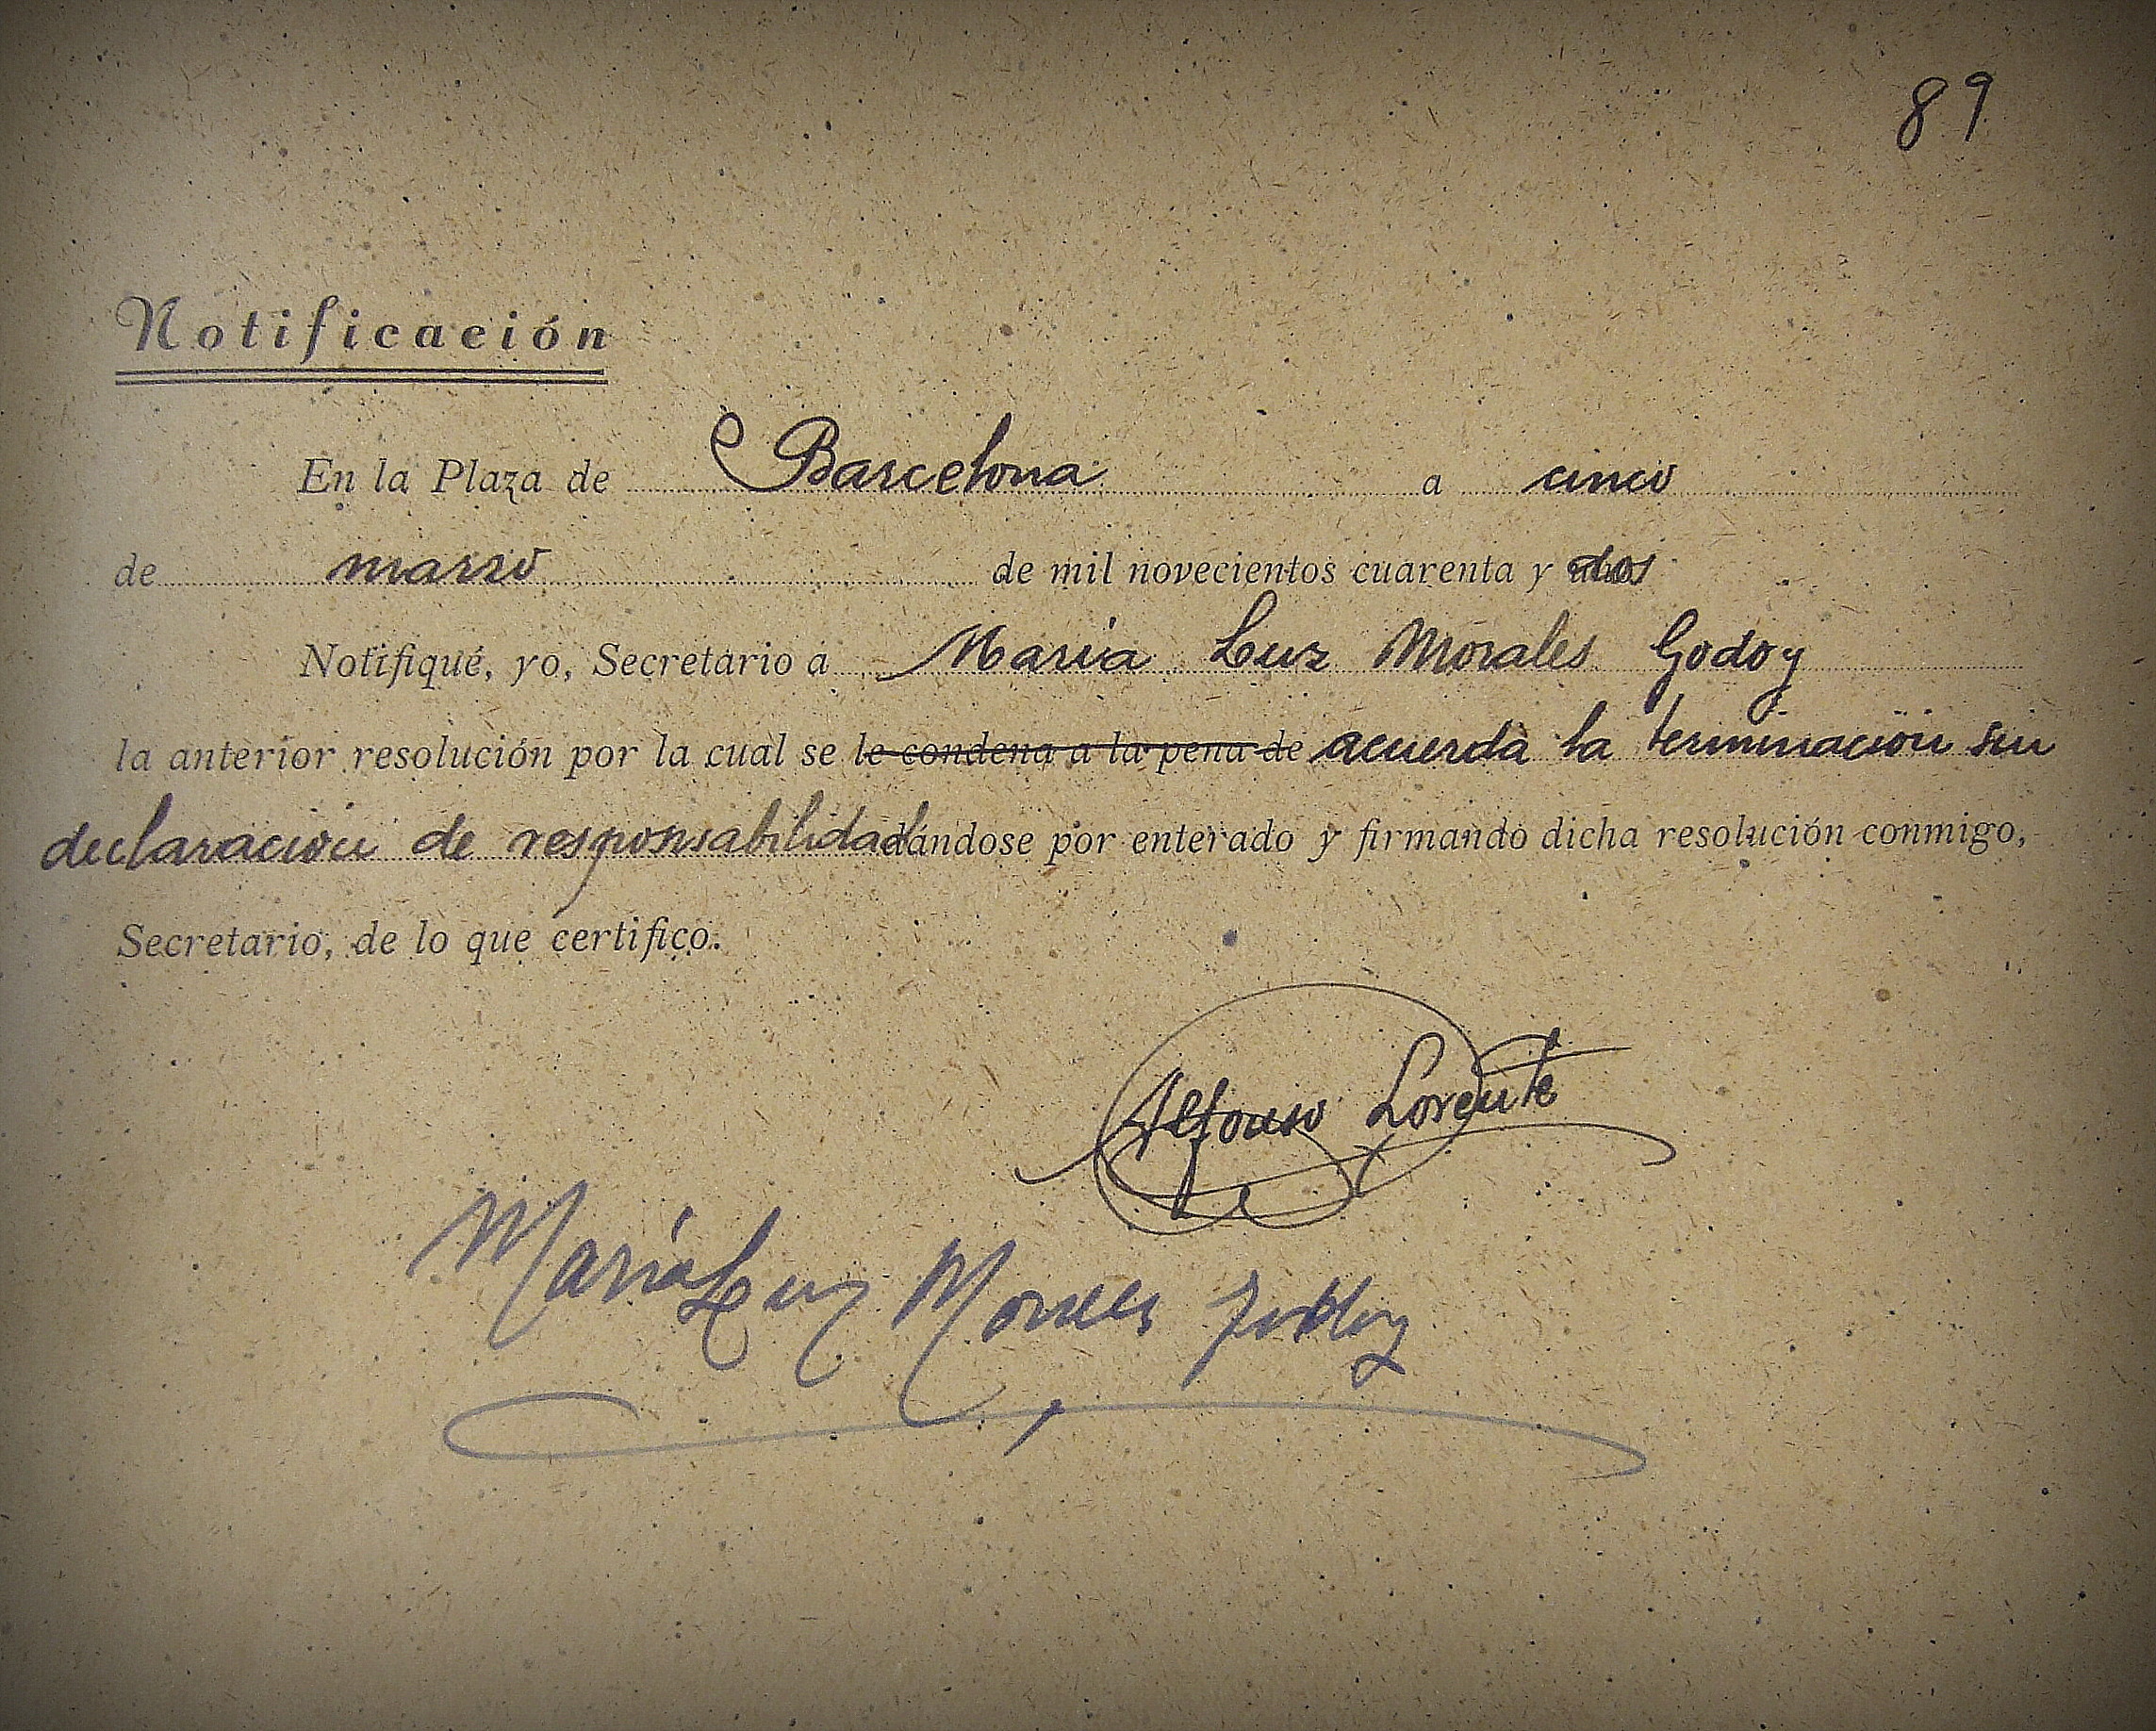 89
Notificación
En la Plaza de Barcelona a cinco
de marzo de mil novecientos cuarenta y dos
Notifiqué, yo, Secretario a María Luz Morales Godoy
la anterior resolución por la cual se le condena a la pena de acuerda la terminación sin
declaración de responsabilidad dándose por enterado y firmando dicha resolución conmigo,
Secretario, de lo que certifico.
Alfonso Lorente
María Luz Morales Godoy